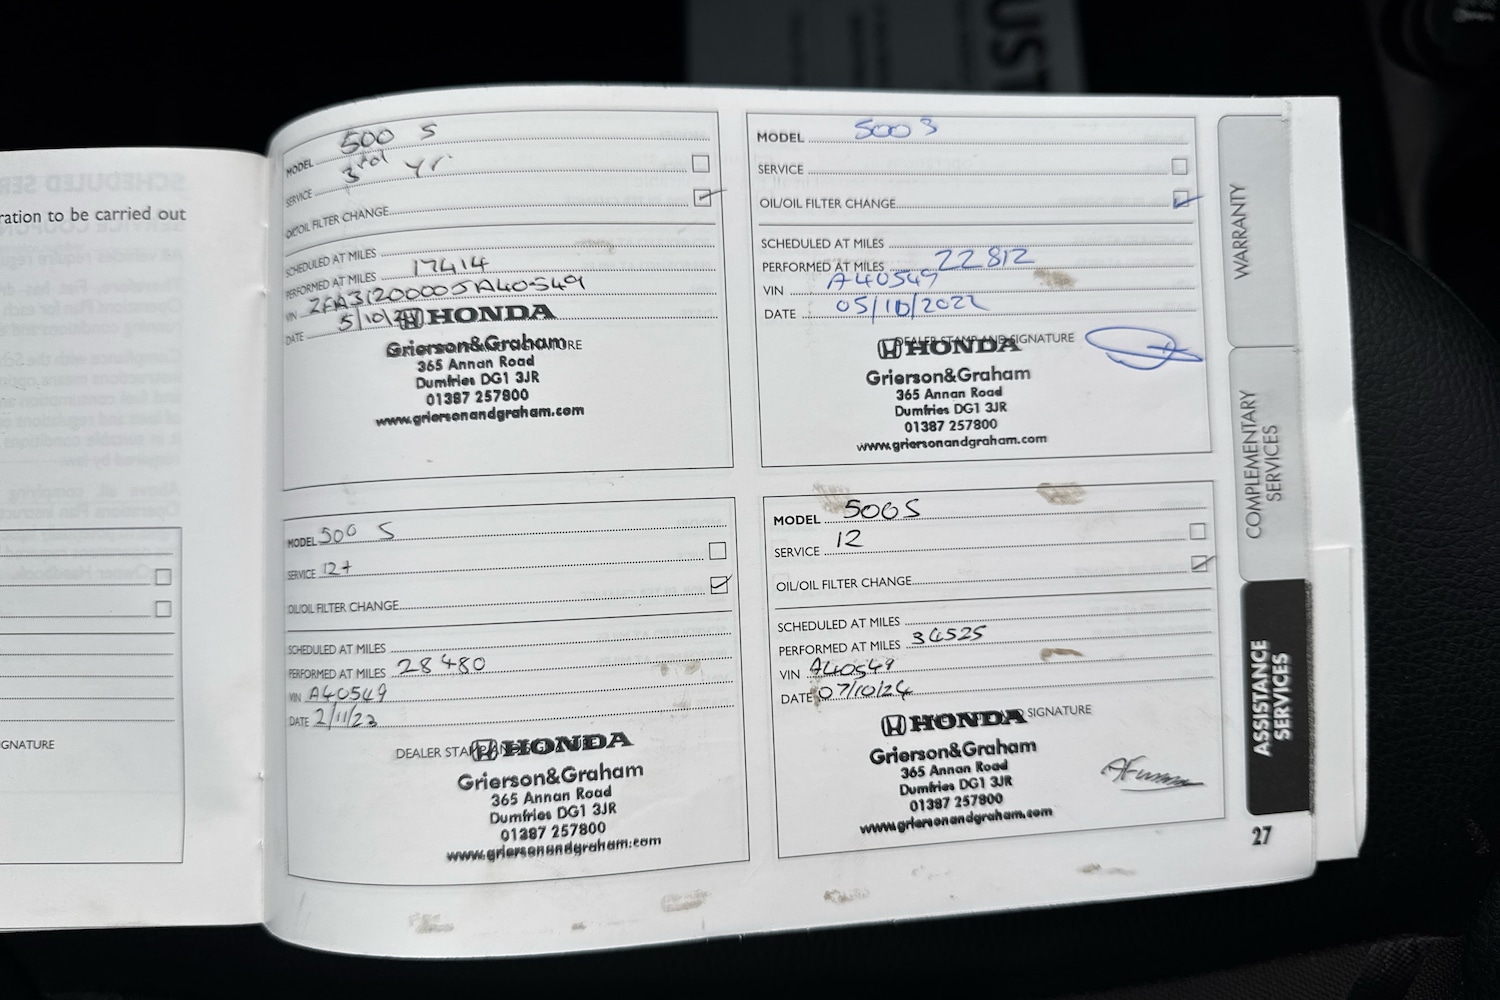 UST
ration to be carried out
GNATURE
MODEL 500 S
SERVICE 3rd Yr.
OIL/OIL FILTER CHANGE
SCHEDULED AT MILES
PERFORMED AT MILES 17414
VIN ZFA3120000JA40549
DATE 5/10/21
HONDA
SIGNATURE
Grierson&Graham
365 Annan Road
Dumfries DG1 3JR
01387 257800
www.griersonandgraham.com
MODEL 500 S
SERVICE
OIL/OIL FILTER CHANGE
SCHEDULED AT MILES
PERFORMED AT MILES 22812
VIN A40549
DATE 05/10/2022
DEALER STAMP AND SIGNATURE
HONDA
Grierson&Graham
365 Annan Road
Dumfries DG1 3JR
01387 257800
www.griersonandgraham.com
MODEL 500 S
SERVICE 12+
OIL/OIL FILTER CHANGE
SCHEDULED AT MILES
PERFORMED AT MILES 28480
VIN A40549
DATE 2/11/23
DEALER STAMP
HONDA
Grierson&Graham
365 Annan Road
Dumfries DG1 3JR
01387 257800
www.griersonandgraham.com
MODEL 500S
SERVICE 12
OIL/OIL FILTER CHANGE
SCHEDULED AT MILES
PERFORMED AT MILES 34525
VIN A40549
DATE 07/10/24
HONDA SIGNATURE
Grierson&Graham
365 Annan Road
Dumfries DG1 3JR
01387 257800
www.griersonandgraham.com
WARRANTY
COMPLEMENTARY
SERVICES
ASSISTANCE
SERVICES
27